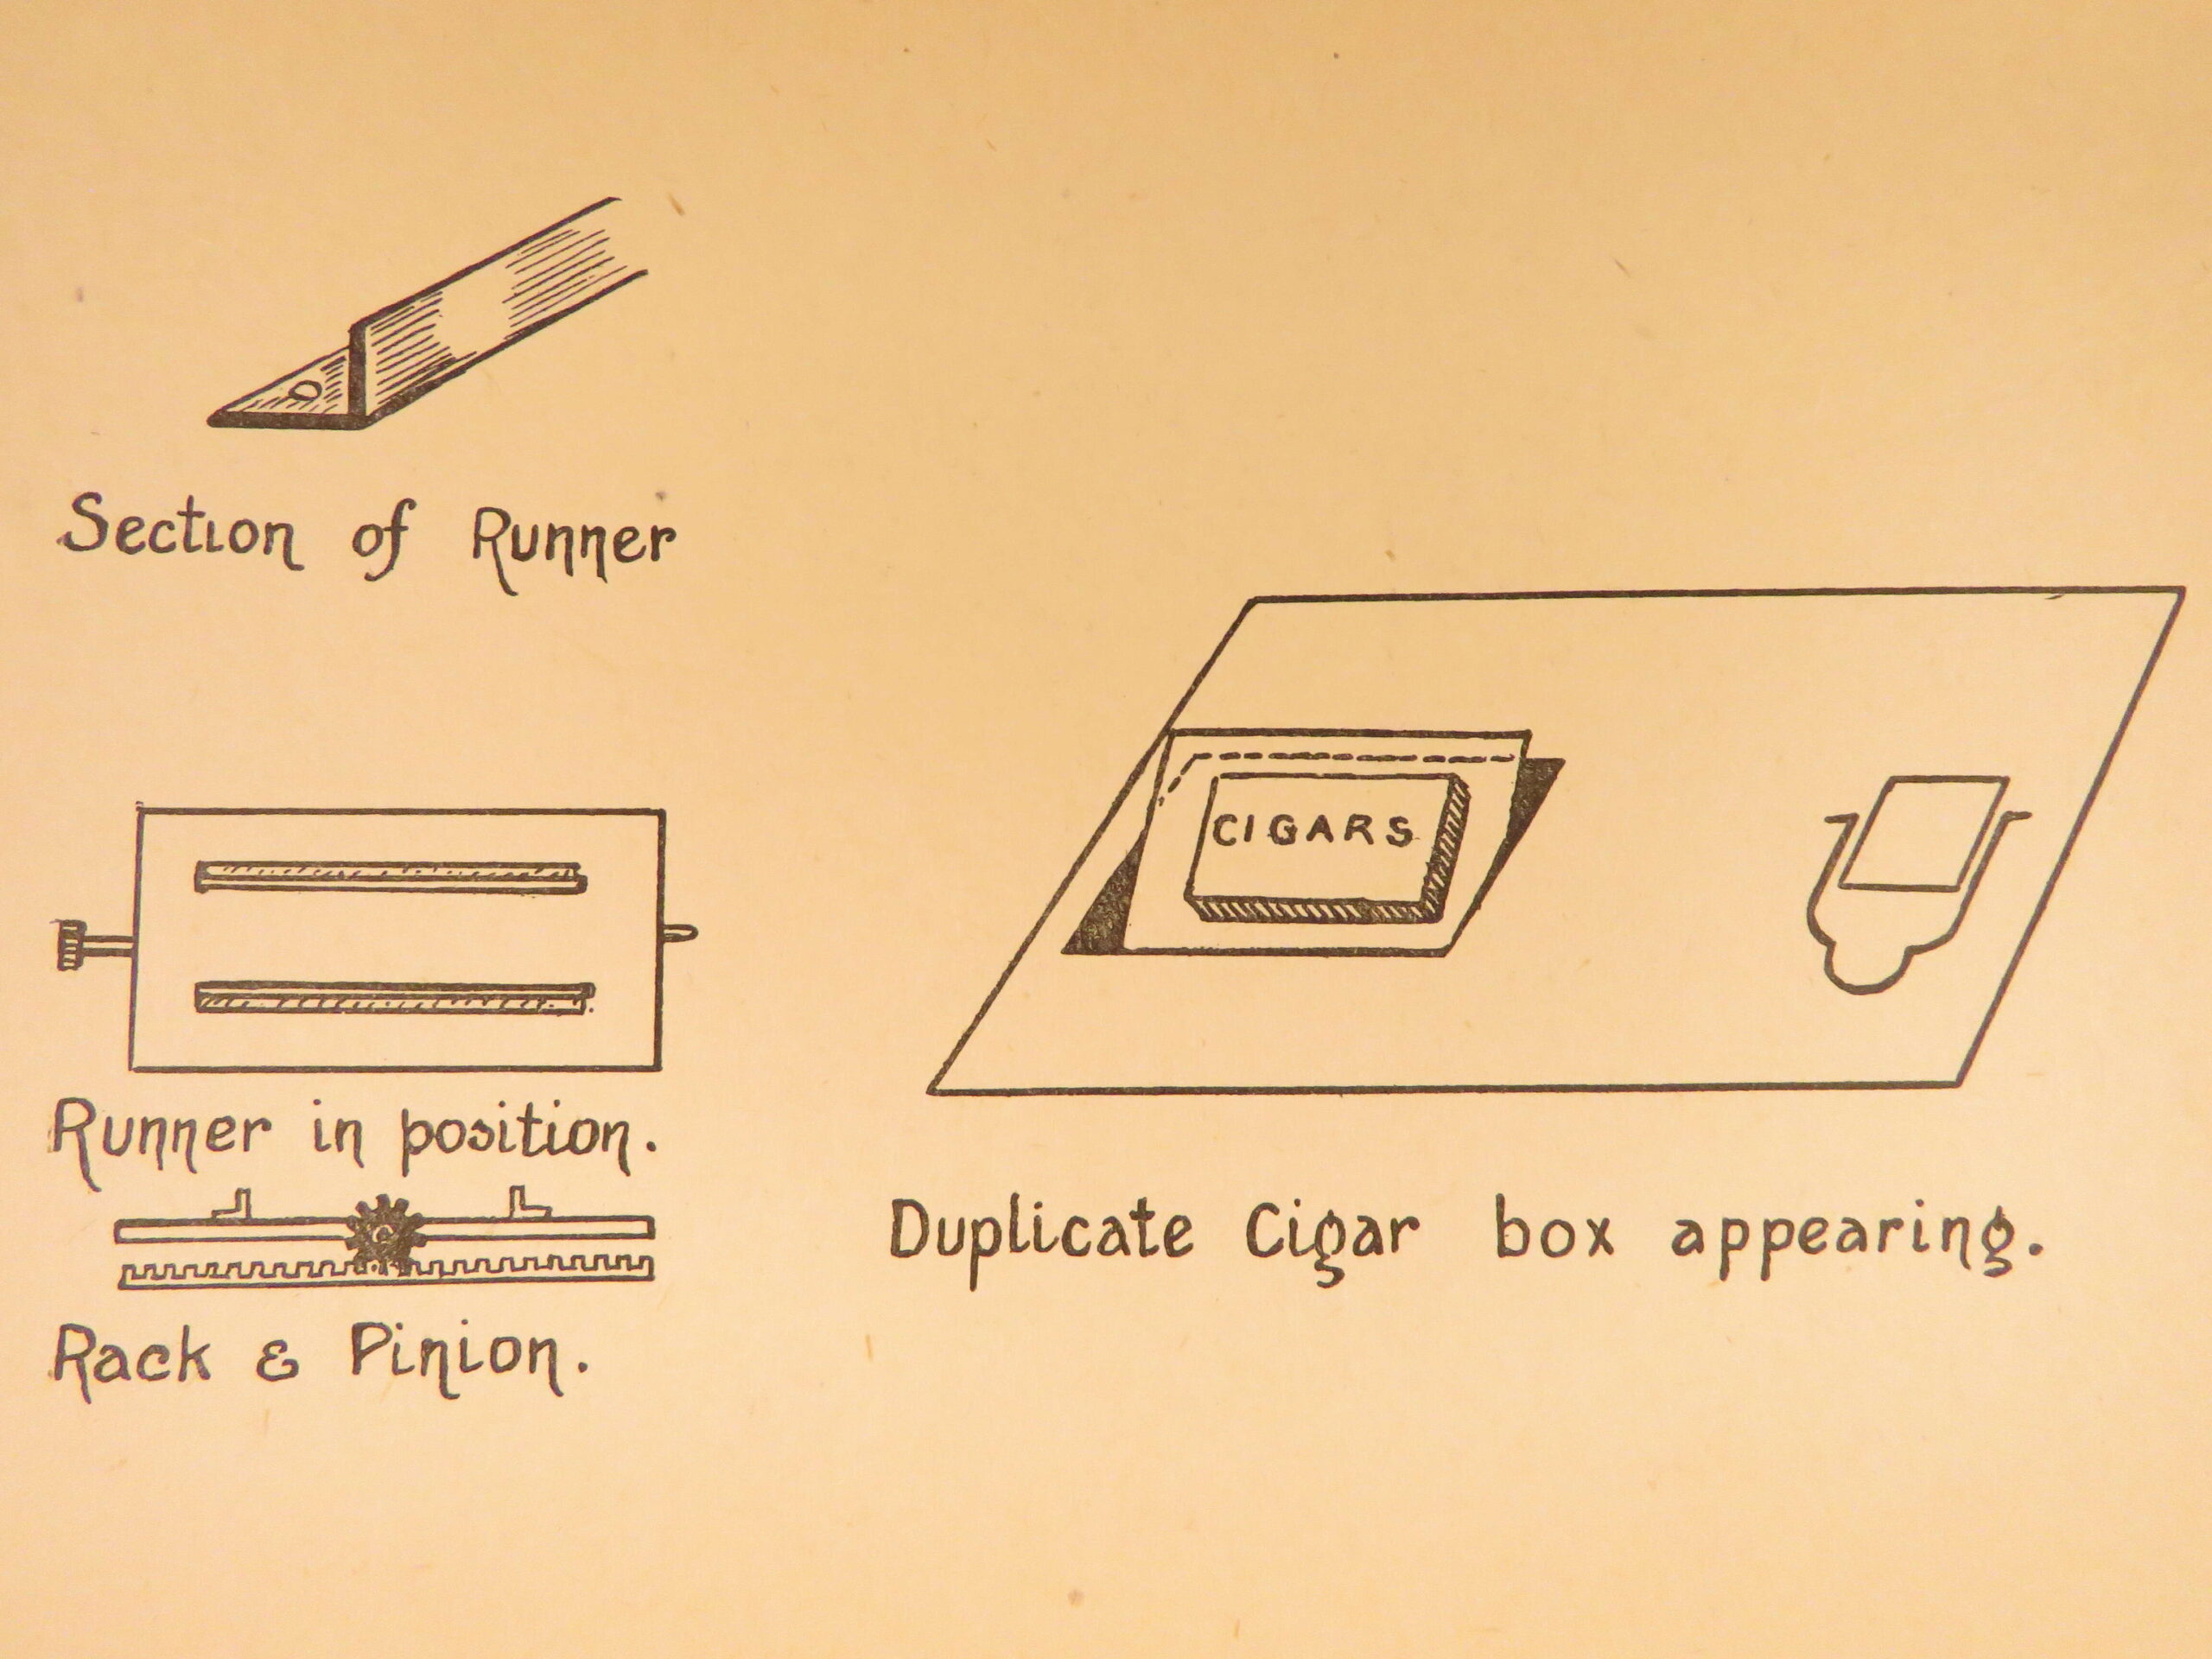 Section of Runner
CIGARS
Runner in position.
Duplicate Cigar box appearing.
Rack & Pinion.